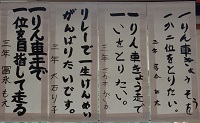 一りん車きょうそうで
一か二位をとりたい。
三年
一りん車きょう走で
一いをとりたい。
三年
リレーで一生けんめい
がんばりたいです。
三年 大石り子
一りん車走で
一位を目指して走る
三年 冨永もえ